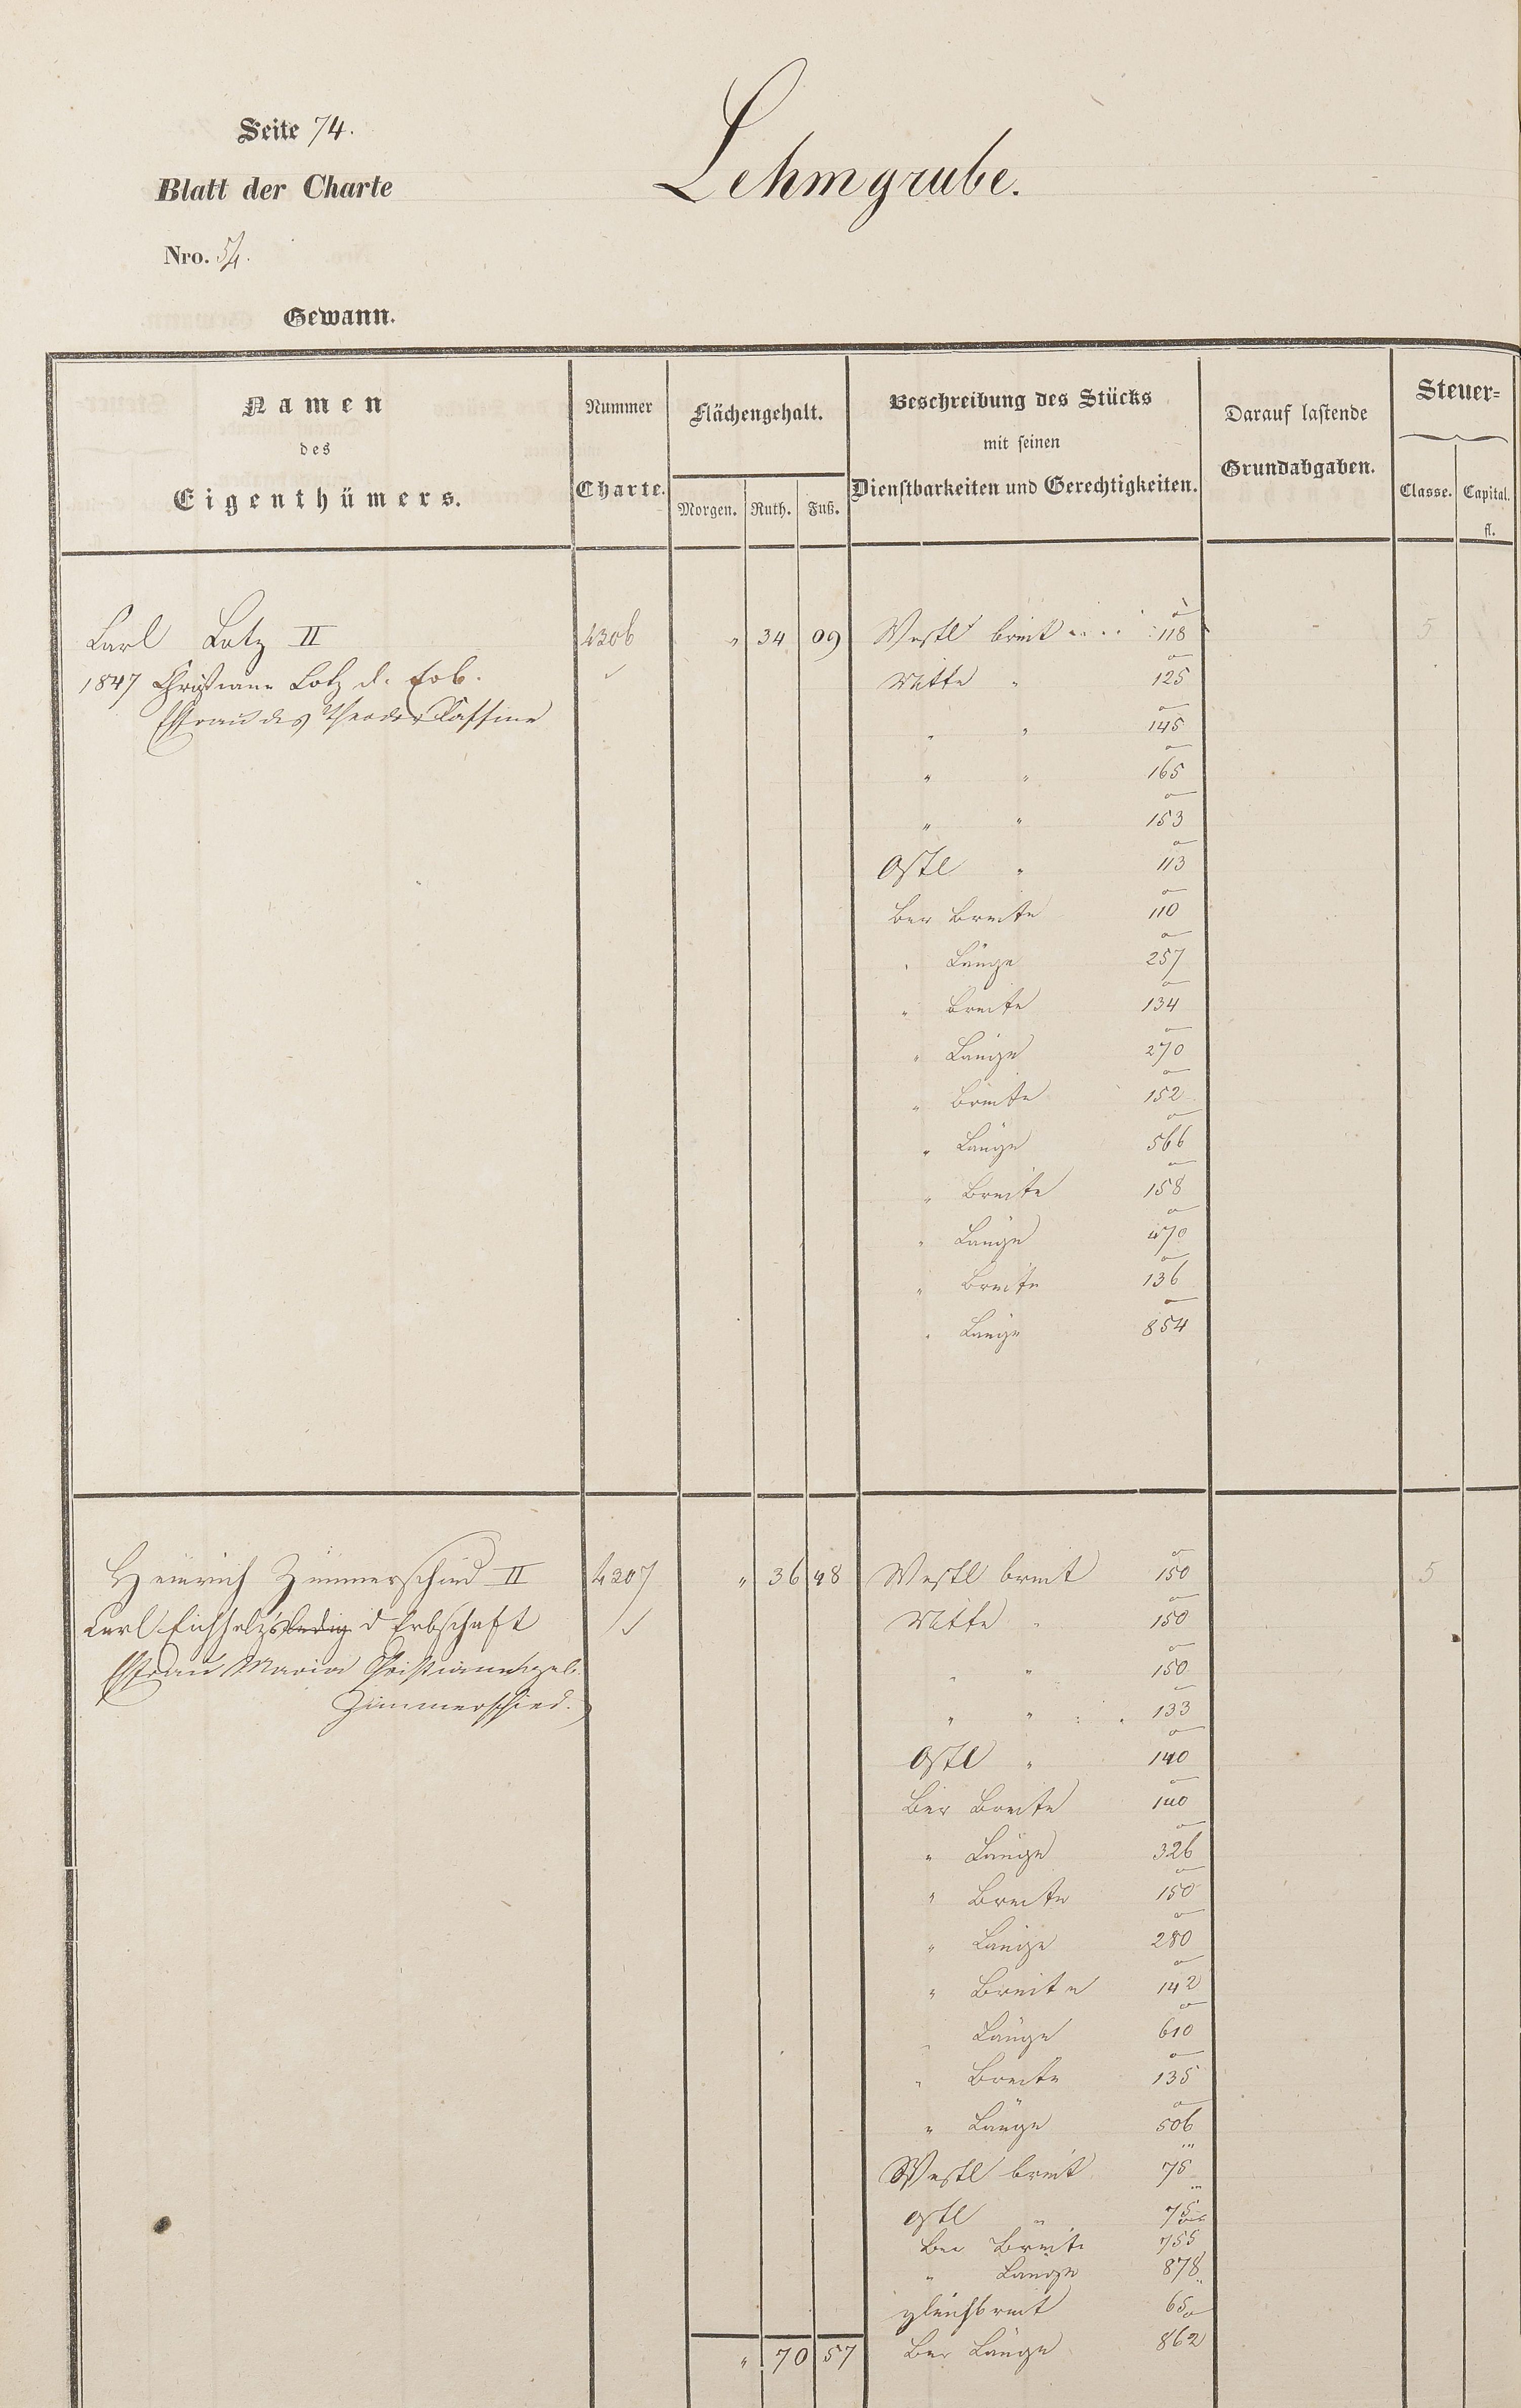 Seite 74.
Lehmgrube.
Blatt der Charte
Nro. 54.
Gewann.
Namen des Eigenthümers.
Nummer Charte.
Flächengehalt.
Morgen. Ruth. Fuß.
Beschreibung des Stücks mit seinen Dienstbarkeiten und Gerechtigkeiten.
Darauf lastende Grundabgaben.
Steuer=
Classe. Capital.
fl.
Carl Lotz II 4306 " 34 09 Westl breit 118 5
1847 Christiane Lotz d. Erb. Mitte " 125
Ehfrau des Theodor
" " 145
" " 165
" " 153
Ostl " 113
Ber Breite 110
" Länge 257
" Breite 134
" Länge 270
" Breite 152
" Länge 566
" Breite 158
" Länge 470
" Breite 136
" Länge 854
Heinrich Zimmerschied II 4307 " 36 48 Westl breit 150 5
Carl Eichholz ledig d Erbschaft Mitte " 150
Ehfrau Maria Christiane geb. " " 150
Zimmerschied. " " 133
Ostl " 140
Ber Breite 140
" Länge 326
" Breite 150
" Länge 280
" Breite 142
" Länge 610
" Breite 135
" Länge 506
Westl breit 75
Ostl " 75
Ber Breite 755
" Länge 878
gleichbreit 65
" 70 57 Ber Länge 862